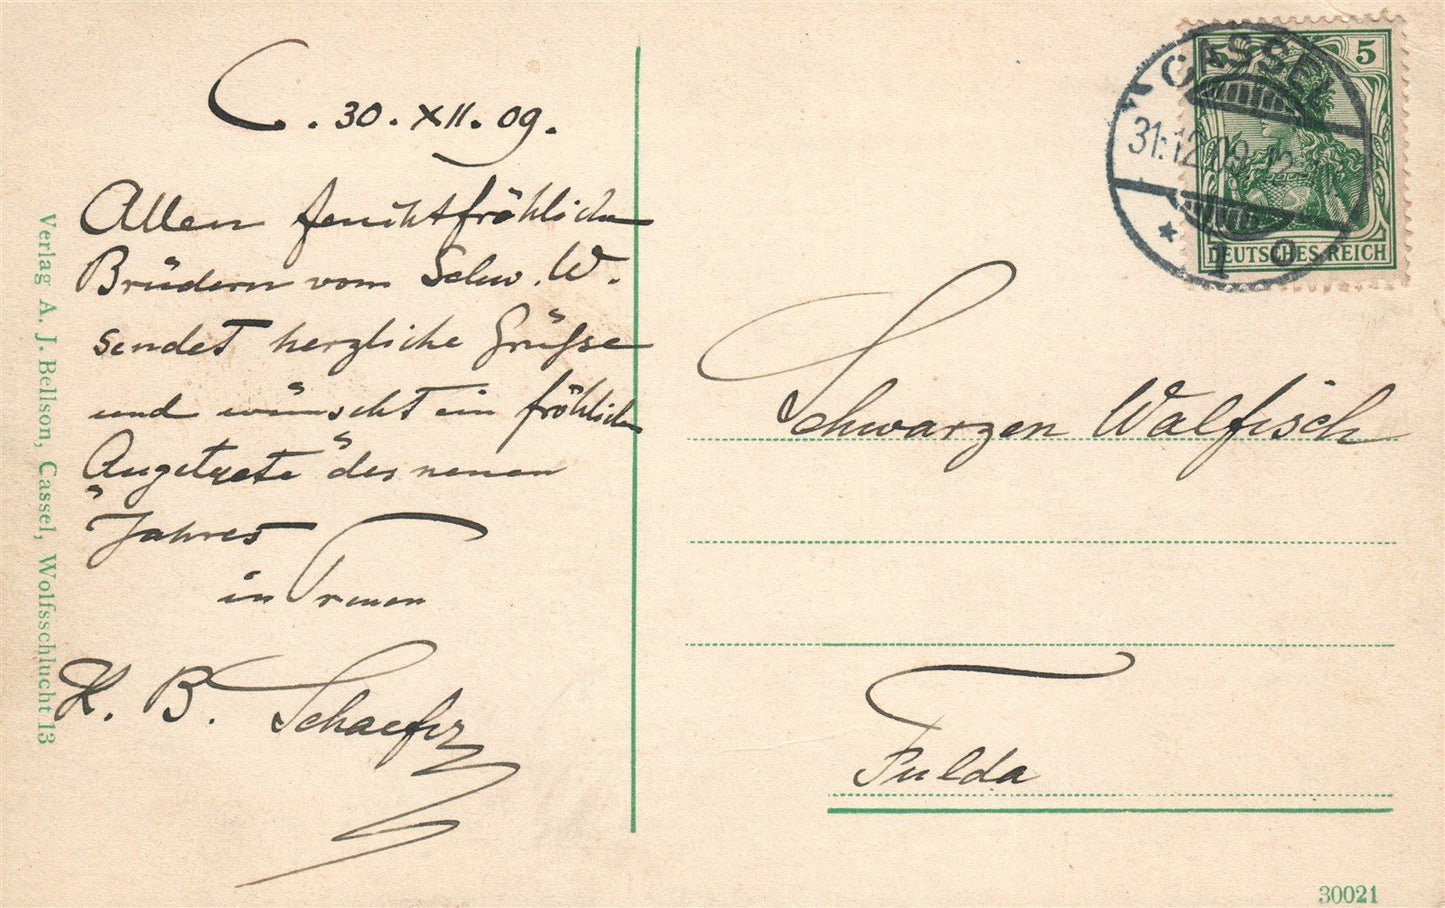 C. 30. XII. 09.
Allen feuchtfröhlichen
Brüdern vom Schw. W.
sendet herzliche Grüße
und wünscht ein fröhliches
"Angetrete" des neuen
Jahres
in Treuen
K. B. Schaefer
Verlag A. J. Bellson, Cassel, Wolfsschlucht 13
CASSEL
31.12.09
* 1
5
DEUTSCHES REICH
Schwarzen Walfisch
Fulda
30021